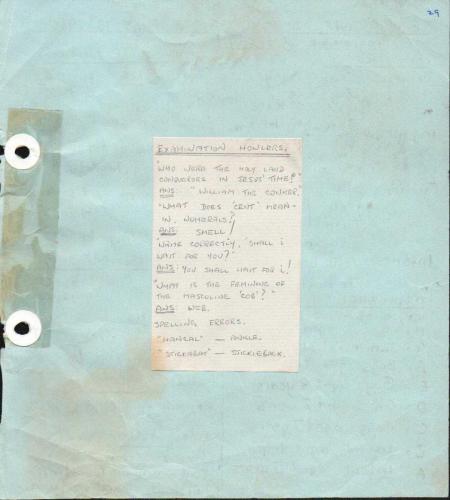 29
EXAMINATION HOWLERS.
"WHO WERE THE HOLY LAND
CONQUERORS IN JESUS' TIME?"
ANS: "WILLIAM THE CONKER."
"WHAT DOES 'CENT' MEAN
IN NUMERALS?
ANS: SMELL!
"WRITE CORRECTLY, 'SHALL I
WAIT FOR YOU?"
ANS: YOU SHALL WAIT FOR I!
"WHAT IS THE FEMININE OF
THE MASCULINE 'COB'?"
ANS: WEB.
SPELLING ERRORS.
— ANKLE.
— STICKLEBACK.